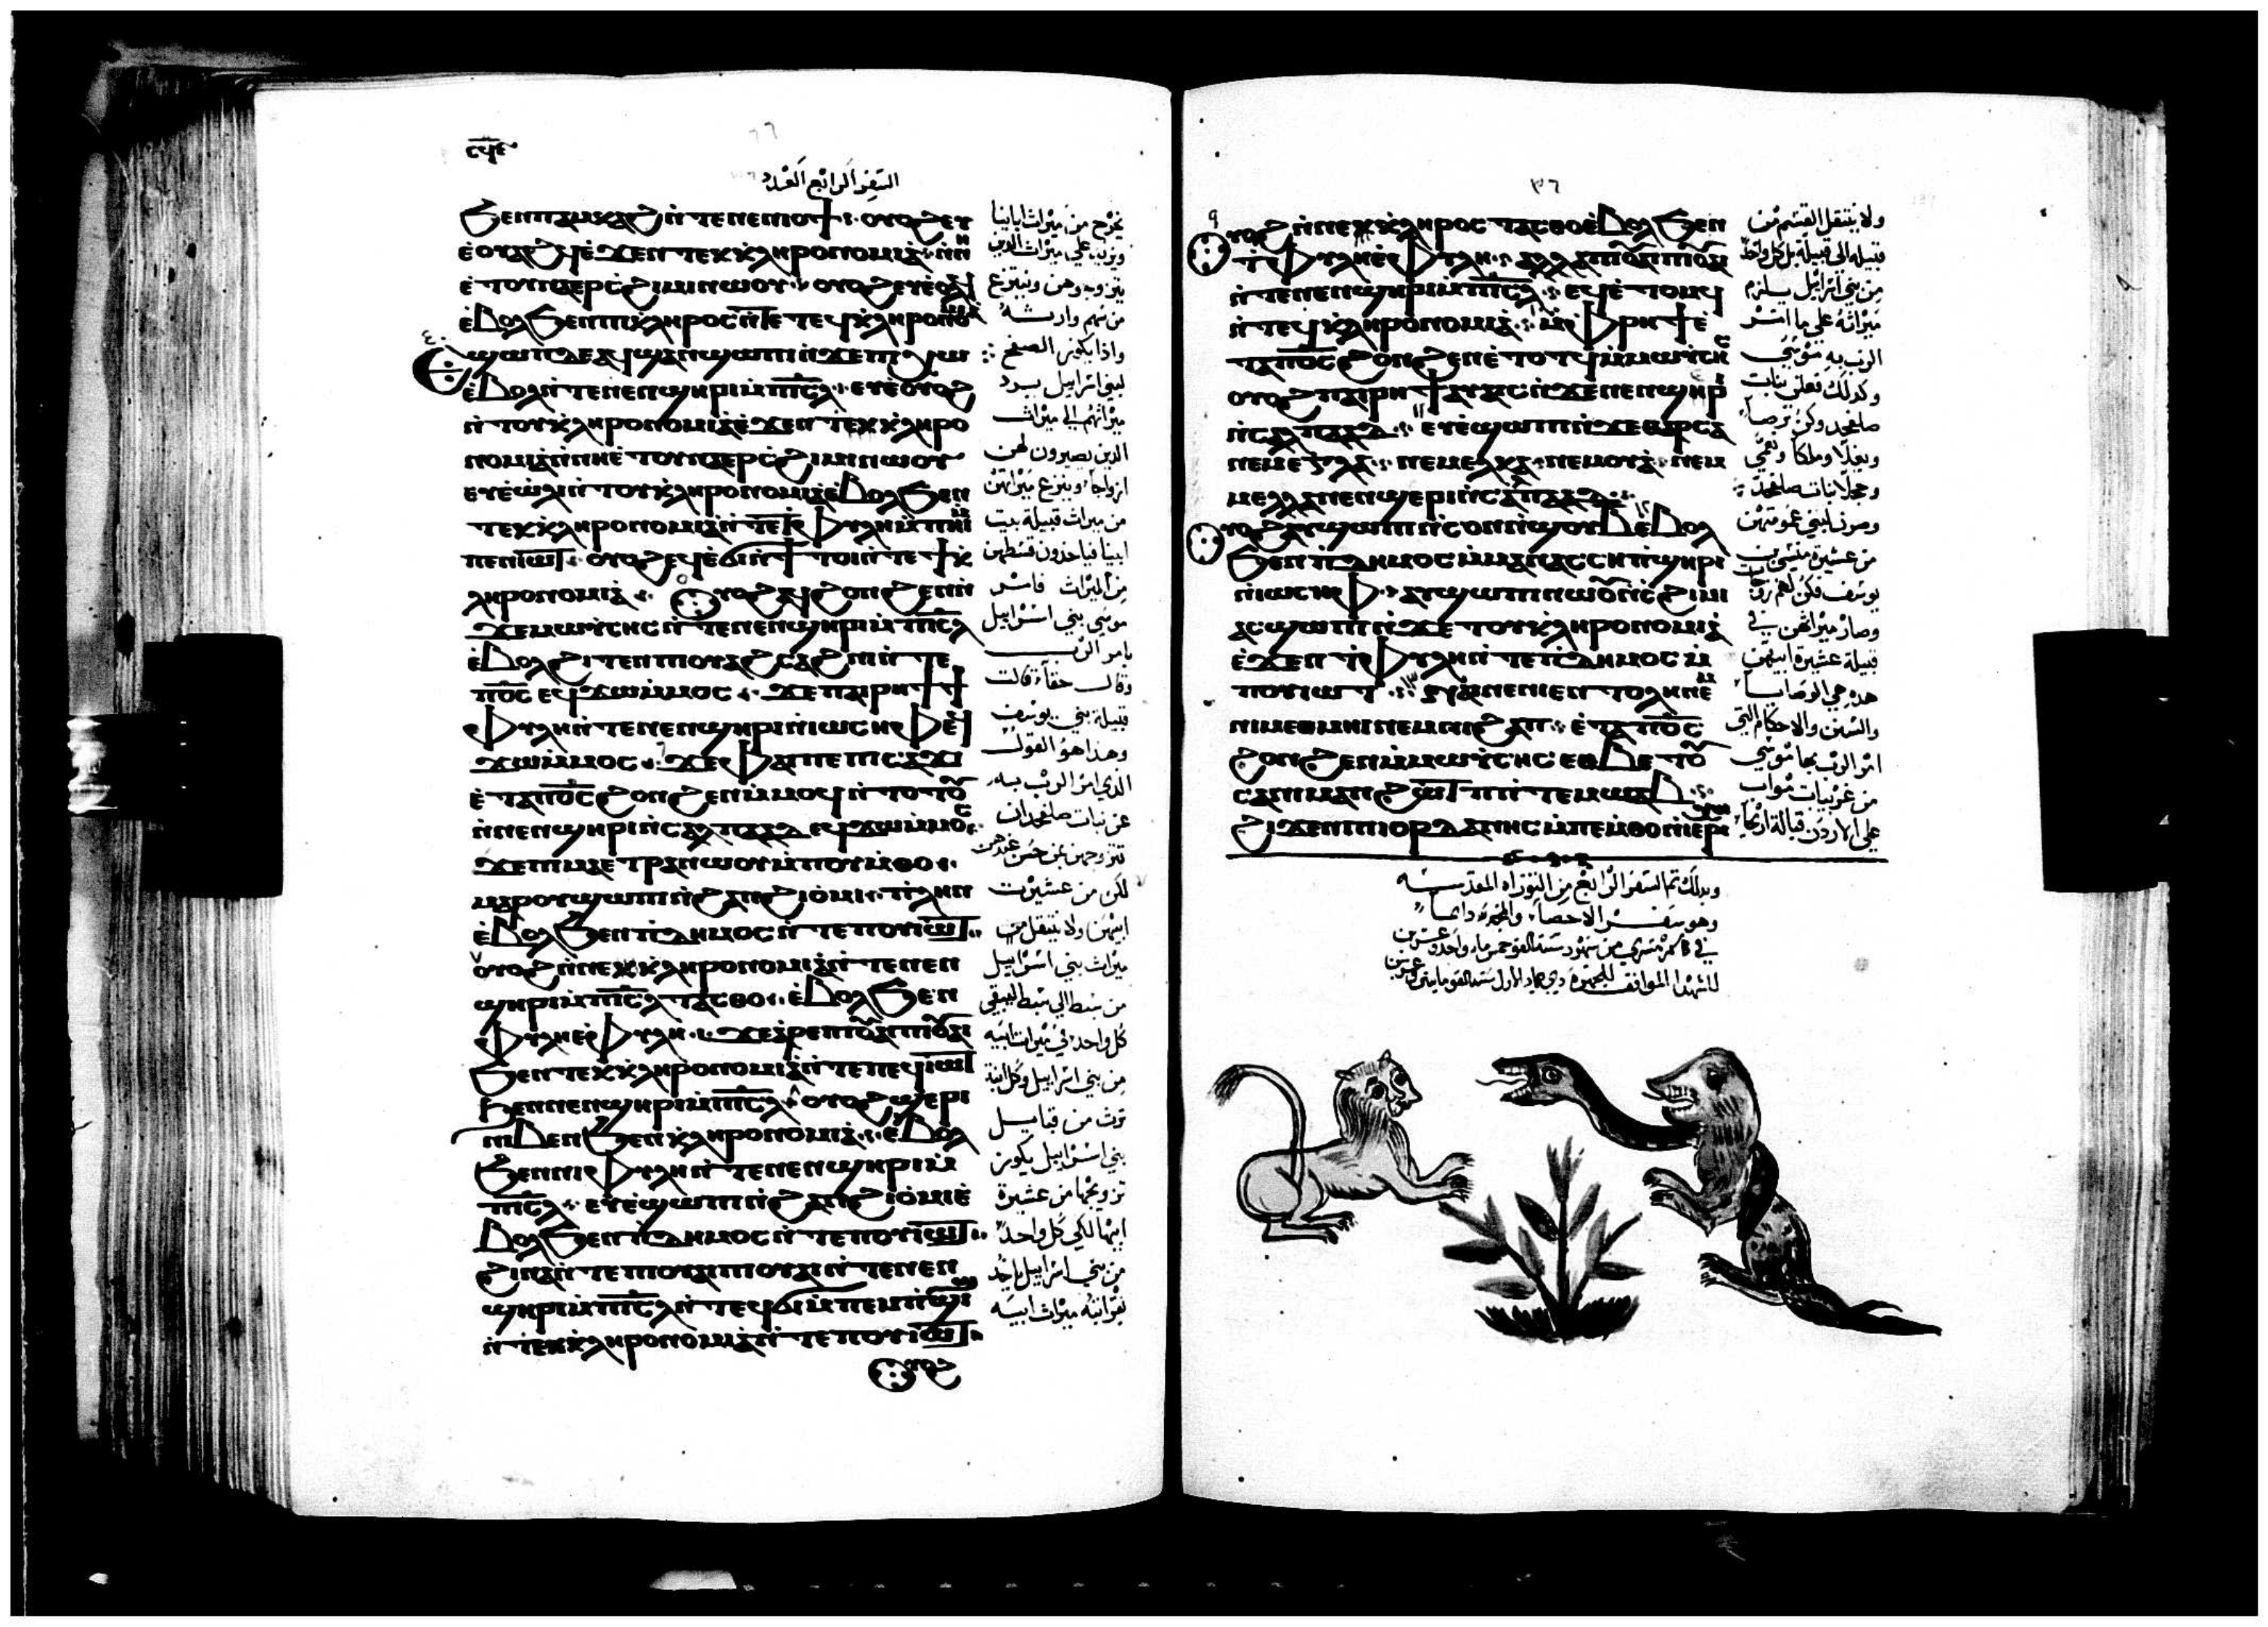 ⲥϥⲉ
السفر الرابع العدد
ϧⲉⲛⲡⲁⲙⲕⲁϩⲓ ⲛ̀ⲧⲉⲛⲉⲛⲓⲟϯ ⲟⲩⲟϩ ⲉⲩ
ⲉ̀ⲟⲩⲁϩϥ ⲉ̀ϫⲉⲛ ⲧⲉⲕⲕⲗⲏⲣⲟⲛⲟⲙⲓⲁ ⲛ̀ⲛⲏ
ⲉ̀ⲧⲟⲩⲛⲁⲉⲣⲥ̀ϩⲓⲙⲓ ⲛⲱⲟⲩ ⲟⲩⲟϩ ⲉⲩⲉ̀ⲟⲗϥ
ⲉ̀ⲃⲟⲗϧⲉⲛ ⲡⲓⲕ̀ⲗⲏⲣⲟⲥ ⲛ̀ⲧⲉ ⲧⲉϥⲕ̀ⲗⲏⲣⲟⲛⲟⲙⲓⲁ
ⲉϣⲱⲡ ⲇⲉ ⲁϥϣⲁⲛϣⲱⲡⲓ ⲛ̀ϫⲉ ⲡⲓϫⲱ
ⲉ̀ⲃⲟⲗ ⲛ̀ⲧⲉⲛⲉⲛϣⲏⲣⲓ ⲙ̀ⲡⲓⲥ̅ⲗ̅ ⲉⲩⲉ̀ⲟⲩⲟϩ
ⲛ̀ⲧⲟⲩⲕ̀ⲗⲏⲣⲟⲛⲟⲙⲓⲁ ⲉ̀ϫⲉⲛ ⲧⲉⲕⲕⲗⲏⲣⲟ
ⲛⲟⲙⲓⲁ ⲛ̀ⲛⲏ ⲉ̀ⲧⲟⲩⲛⲁⲉⲣⲥ̀ϩⲓⲙⲓ ⲛⲱⲟⲩ
ⲉⲩⲉ̀ⲱ̀ⲗⲓ ⲛ̀ⲧⲟⲩⲕ̀ⲗⲏⲣⲟⲛⲟⲙⲓⲁ ⲉ̀ⲃⲟⲗϧⲉⲛ
ⲧⲉⲕⲕ̀ⲗⲏⲣⲟⲛⲟⲙⲓⲁ ⲛ̀ⲧⲉ ϯⲫⲩⲗⲏ ⲙ̀ⲡⲏⲓ ⲙ̀
ⲡⲉⲛⲓⲱⲧ
ⲗⲏⲣⲟⲛⲟⲙⲓⲁ ⲟⲩⲟϩ ⲁϥϩⲟⲛϩⲉⲛ ⲛ̀
ϫⲉ ⲙⲱⲩⲥⲏⲥ ⲛ̀ⲧⲉⲛⲉⲛϣⲏⲣⲓ ⲙ̀ⲡⲓⲥ̅ⲗ̅
ⲉ̀ⲃⲟⲗϩⲓⲧⲉⲛ ⲡⲓⲟⲩⲁϩⲥⲁϩⲛⲓ ⲛ̀ⲧⲉ
ⲡⲟ̅ⲥ̅ ⲉϥϫⲱⲙ̀ⲙⲟⲥ ϫⲉ ⲡⲁⲓⲣⲏϯ ϯ
ⲫⲩⲗⲏ ⲛ̀ⲧⲉⲛⲉⲛϣⲏⲣⲓ ⲛ̀ⲓⲱⲥⲏⲫ
ϫⲱⲙ̀ⲙⲟⲥ ϫⲉ ⲫⲁⲓ ⲡⲉ ⲡⲓⲥⲁϫⲓ
ⲉ̀ⲧⲁ ⲡⲟ̅ⲥ̅ ϩⲟⲛϩⲉⲛ ⲙ̀ⲙⲟϥ ⲛ̀ⲧⲟⲧⲟⲩ
ⲛ̀ⲛⲉⲛϣⲏⲣⲓ ⲛ̀ⲥⲁⲗⲡⲁⲁⲇ ⲉϥϫⲱⲙ̀ⲙⲟⲥ
ϫⲉ ⲡⲓⲙⲁ ⲉⲧⲣⲁⲛⲱⲟⲩ ⲙ̀ⲡⲟⲩⲙ̀ⲑⲟ
ⲙⲁⲣⲟⲩϣⲱⲡⲓ ⲛ̀ϩⲁⲛϩⲓⲟ̀ⲙⲓ ⲡⲗⲏⲛ
ⲉ̀ⲃⲟⲗϧⲉⲛ ⲡⲓⲇⲏⲙⲟⲥ ⲛ̀ⲧⲉ ⲡⲟⲩⲓⲱⲧ
ⲟⲩⲟϩ ⲛ̀ⲛⲉⲕⲕ̀ⲗⲏⲣⲟⲛⲟⲙⲓⲁ ⲛ̀ⲧⲉⲛⲉⲛ
ϣⲏⲣⲓ ⲙ̀ⲡⲓⲥ̅ⲗ̅ ⲧⲁⲥⲑⲟ ⲉ̀ⲃⲟⲗϧⲉⲛ
ⲫⲩⲗⲏ ⲉ̀ⲫⲩⲗⲏ ϫⲉ ⲉ̀ⲣⲉ ⲡⲓⲟⲩⲁⲓ ⲡⲓⲟⲩⲁⲓ
ϧⲉⲛ ⲧⲉⲕⲕ̀ⲗⲏⲣⲟⲛⲟⲙⲓⲁ ⲛ̀ⲧⲉ ⲡⲉϥⲓⲱⲧ
ϧⲉⲛ ⲛⲉⲛϣⲏⲣⲓ ⲙ̀ⲡⲓⲥ̅ⲗ̅ ⲟⲩⲟϩ ϣⲉⲣⲓ
ⲛⲓⲃⲉⲛ ϧⲉⲛ ⲕ̀ⲗⲏⲣⲟⲛⲟⲙⲓⲁ ⲉ̀ⲃⲟⲗ
ϧⲉⲛ ⲛⲓⲫⲩⲗⲏ ⲛ̀ⲧⲉⲛⲉⲛϣⲏⲣⲓ ⲙ̀
ⲡⲓⲥ̅ⲗ̅ ⲉⲩⲉ̀ϣⲱⲡⲓ ⲛ̀ϩⲁⲛϩⲓⲟ̀ⲙⲓ ⲉ̀
ⲃⲟⲗϧⲉⲛ ⲡⲓⲇⲏⲙⲟⲥ ⲛ̀ⲧⲉ ⲡⲟⲩⲓⲱⲧ
ϩⲓⲛⲁ ⲛ̀ⲧⲉ ⲡⲓⲟⲩⲁⲓ ⲡⲓⲟⲩⲁⲓ ⲛ̀ⲧⲉⲛⲉⲛ
ϣⲏⲣⲓ ⲙ̀ⲡⲓⲥ̅ⲗ̅ ⲛ̀ⲧⲉϥϭⲓ ⲙ̀ⲡⲉⲙⲡϣⲁ
ⲛ̀ⲧⲉⲕⲕ̀ⲗⲏⲣⲟⲛⲟⲙⲓⲁ ⲛ̀ⲧⲉ ⲡⲟⲩⲓⲱⲧ
ⲟⲩⲟϩ
يخرج من ميراث ابائنا
ويزيد علي ميراث الذين
يتزوجوهن وينتزع
من سهم
واذا يكون الصفح
لبني اسرائيل يزد
ميراثهم الي ميراث
الذين يصيرون لهن
ازواجا وينزع ميراثهن
من ميراث قبيلة بيت
ابينا فياخذون قسطهن
من الميراث فامر
موسي بني اسرائيل
بامر الرب
وقال حقا قالت
قبيلة بني يوسف
وهذا هو القول
الذي امر الرب به
عن بنات صلفحد ان
تتزوجهن بمن حسن عندهن
لكن من عشيرت
ابيهن ولا تنتقل من
ميراث بني اسرائيل
من سبط الي سبط ليبقي
كل واحد في ميراث ابيه
من بني اسرائيل وكل ابنة
ترث من قبايل
بني اسرائيل يكون
تزويجها من عشيرة
ابيها لكي كل واحد
من بني اسرائيل ياخذ
ميراث ابيه
٣٦
ⲟⲩⲟϩ ⲛ̀ⲛⲉⲕⲕ̀ⲗⲏⲣⲟⲥ ⲧⲁⲥⲑⲟ ⲉ̀ⲃⲟⲗϧⲉⲛ
ϯⲫⲩⲗⲏ ⲉ̀ⲫⲩⲗⲏ ⲁⲗⲗⲁ ⲡⲓⲟⲩⲁⲓ ⲡⲓⲟⲩⲁⲓ
ⲛ̀ⲧⲉⲛⲉⲛϣⲏⲣⲓ ⲙ̀ⲡⲓⲥ̅ⲗ̅ ⲉϥⲉ̀ⲧⲟⲙϥ
ⲛ̀ⲧⲉϥⲕ̀ⲗⲏⲣⲟⲛⲟⲙⲓⲁ ⲙ̀ⲫⲣⲏϯ ⲉ̀
ⲧⲁ ⲡⲟ̅ⲥ̅ ϩⲟⲛϩⲉⲛ ⲉ̀ⲧⲟⲧϥ ⲙ̀ⲙⲱⲩⲥⲏⲥ
ⲟⲩⲟϩ ⲡⲁⲓⲣⲏϯ ⲁⲩⲁⲓⲥ ⲛ̀ϫⲉ ⲛⲉⲛϣⲏⲣⲓ
ⲛ̀ⲥⲁⲗⲡⲁⲁⲇ ⲉⲩⲉ̀ϣⲱⲡⲓ ⲛ̀ϫⲉ ⲑⲉⲣⲥⲁ
ⲛⲉⲙ ⲉⲅⲗⲁ ⲛⲉⲙ ⲙⲉⲗⲭⲁ ⲛⲉⲙ ⲛⲟⲩⲁ ⲛⲉⲙ
ⲙⲉⲗⲗⲁ ⲛⲉⲛϣⲉⲣⲓ ⲛ̀ⲥⲁⲗⲡⲁⲁⲇ
ⲟⲩⲟϩ ⲁⲩϣⲱⲡⲓ ⲛ̀ⲥⲟⲛ ⲛ̀ϣⲟⲩ ⲉ̀ⲃⲟⲗ
ϧⲉⲛ ⲡⲓⲇⲏⲙⲟⲥ ⲙ̀ⲙⲁⲛⲁⲥⲥⲏ ⲡ̀ϣⲏⲣⲓ
ⲛ̀ⲓⲱⲥⲏⲫ ⲁⲩϣⲱⲡⲓ ⲛⲱⲟⲩ ⲛ̀ⲥ̀ϩⲓⲙⲓ
ⲁⲥϣⲱⲡⲓ ⲛ̀ϫⲉ ⲧⲟⲩⲕ̀ⲗⲏⲣⲟⲛⲟⲙⲓⲁ
ⲉ̀ϫⲉⲛ ϯⲫⲩⲗⲏ ⲛ̀ⲧⲉ ⲡⲓⲇⲏⲙⲟⲥ ⲙ̀
ⲡⲟⲩⲓⲱⲧ ⲛⲁⲓ ⲛⲉ ⲛⲓⲉⲛⲧⲟⲗⲏ ⲛⲉⲙ
ⲛⲓⲙⲉⲑⲙⲏⲓ ⲛⲉⲙ ⲛⲓϩⲁⲡ ⲉ̀ⲧⲁ ⲡⲟ̅ⲥ̅
ϩⲟⲛϩⲉⲛ ⲙ̀ⲙⲱⲩⲥⲏⲥ ⲉⲑⲃⲉⲧⲟⲩ
ⲥⲁⲡⲓⲙⲁⲛϩⲱⲧⲡ ⲛ̀ⲧⲉ ⲙⲱⲁⲃ
ϩⲓϫⲉⲛ ⲡⲓⲓⲟⲣⲇⲁⲛⲏⲥ ⲙ̀ⲡⲉⲙ̀ⲑⲟ ⲛ̀ⲓⲉⲣⲓⲭⲱ
ولا ينتقل القسم من
قبيلة الي قبيلة بل كل واحد
من بني اسرائيل يلزم
ميراثه علي ما امر
الرب به موسي
وكذلك فعلن بنات
صلفحد وكن ترصا
وبغلا وملكا ونعمي
ومحلا بنات صلفحد
وصرن لبني عمومتهن
من عشيرة منسي بن
يوسف فكن لهم زوجات
وصار ميراثهن في
قبيلة عشيرة ابيهن
هذه هي الوصايا
والسنن والاحكام التي
امر الرب بها موسي
من غربيات مواب
علي الاردن قبالة اريحا
وبذلك تم السفر الرابع من التوراه المقدسه
وهو سفر الاحصا والمجد لله دايما